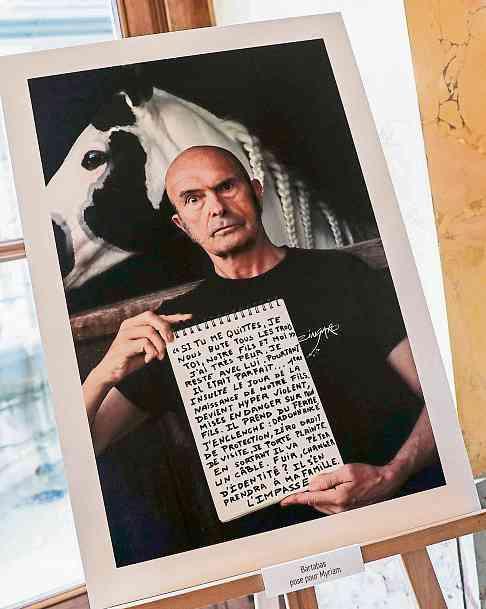 « SI TU ME QUITTES, JE
NOUS BUTE TOUS LES TROIS
TOI, NOTRE FILS ET MOI »
J'AI TRÈS PEUR JE
RESTE AVEC LUI. POURTANT
IL ÉTAIT PARFAIT...
ENSUITE LE JOUR DE LA
NAISSANCE DE NOTRE FILS,
DEVIENT HYPER VIOLENT,
MISES EN DANGER SUR MON
FILS. IL PREND DU FERME
J'ENCLENCHE : ORDONNANCE
DE PROTECTION, ZÉRO DROIT
DE VISITE, JE PORTE PLAINTE
EN SORTANT IL VA PÉTER
UN CÂBLE. FUIR, CHANGER
D'IDENTITÉ ? IL S'EN
PRENDRA À MA FAMILLE.
L'IMPASSE
ZINGARO
Bartabas
pose pour Myriam